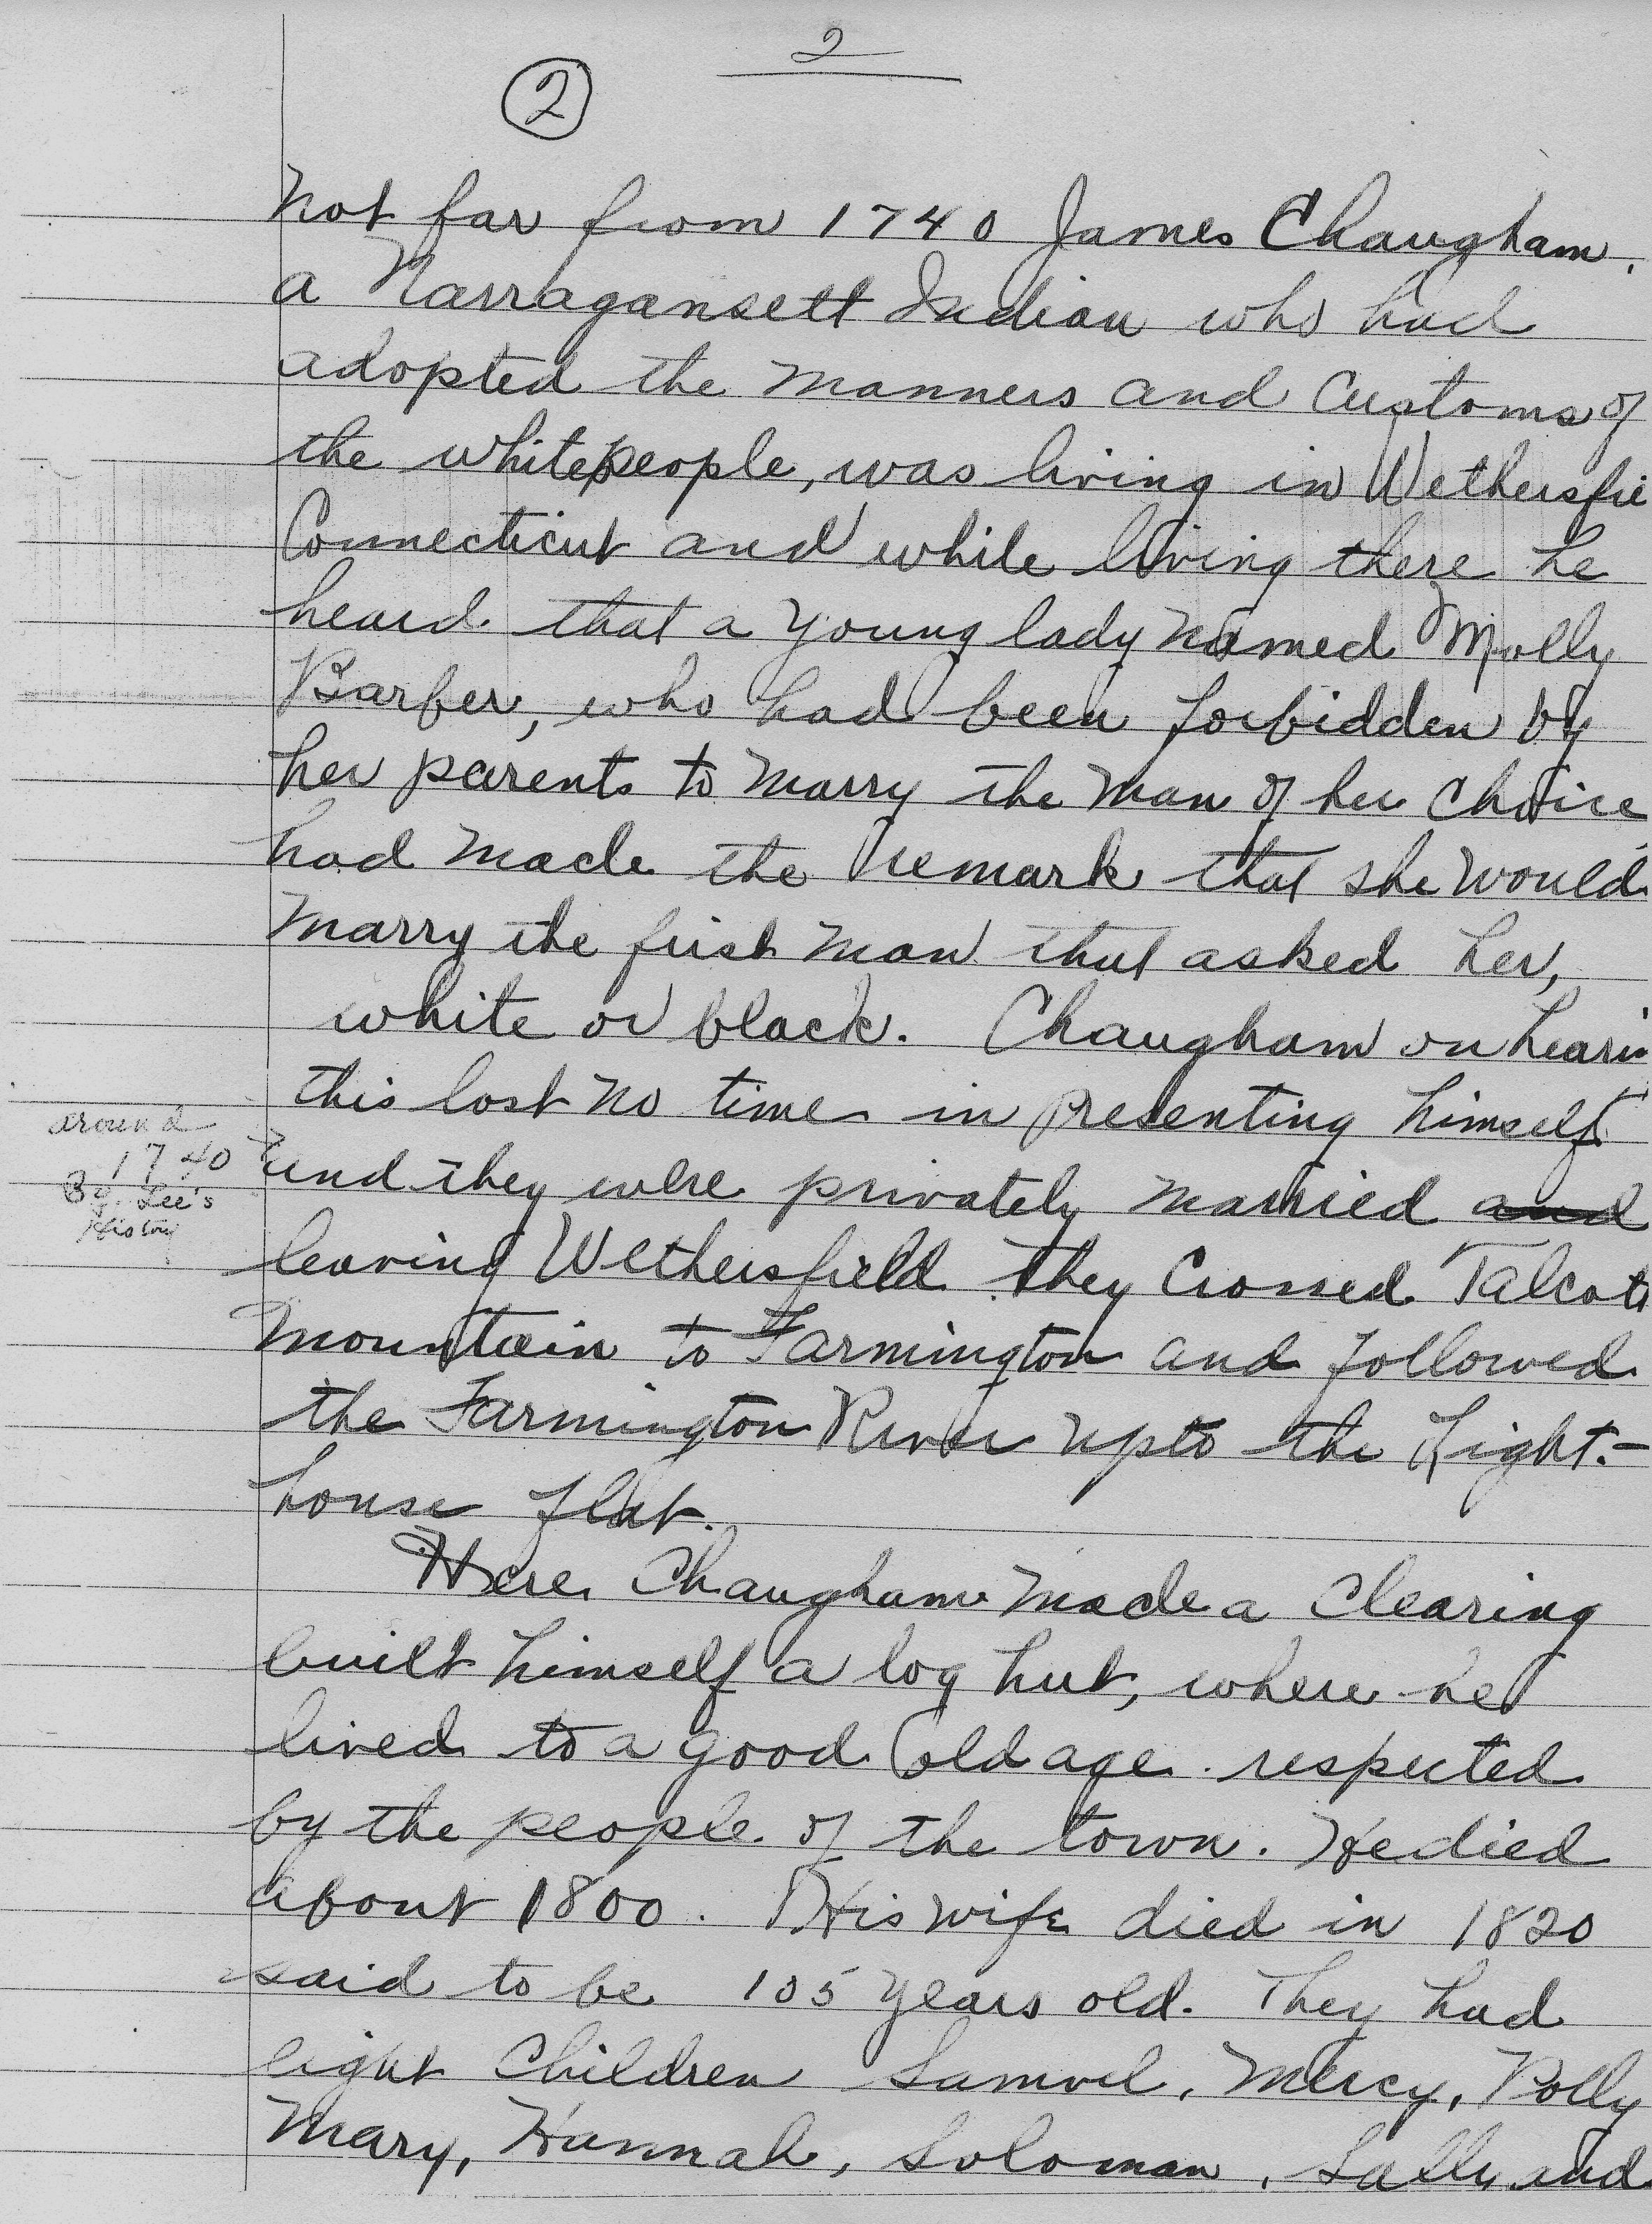 2
2
Not far from 1740 James Chaugham,
a Narragansett Indian who had
adopted the manners and customs of
the white people, was living in Wethersfie
Connecticut and while living there he
heard that a young lady named Molly
Barber, who had been forbidden by
her parents to marry the man of her choice
had made the remark that she would
marry the first man that asked her,
white or black. Chaugham on hearin
this lost no time in presenting himself
around
1740
By Lee's
History
and they were privately married and
leaving Wethersfield they crossed Talcott
Mountain to Farmington and followed
the Farmington River up to the Light-
house flat.
Here Chaugham made a clearing
built himself a log hut, where he
lived to a good old age. respected
by the people of the town. He died
about 1800. His wife died in 1820
said to be 105 years old. They had
eight children Samuel, Mercy, Polly
Mary, Hannah, Soloman, Sally and